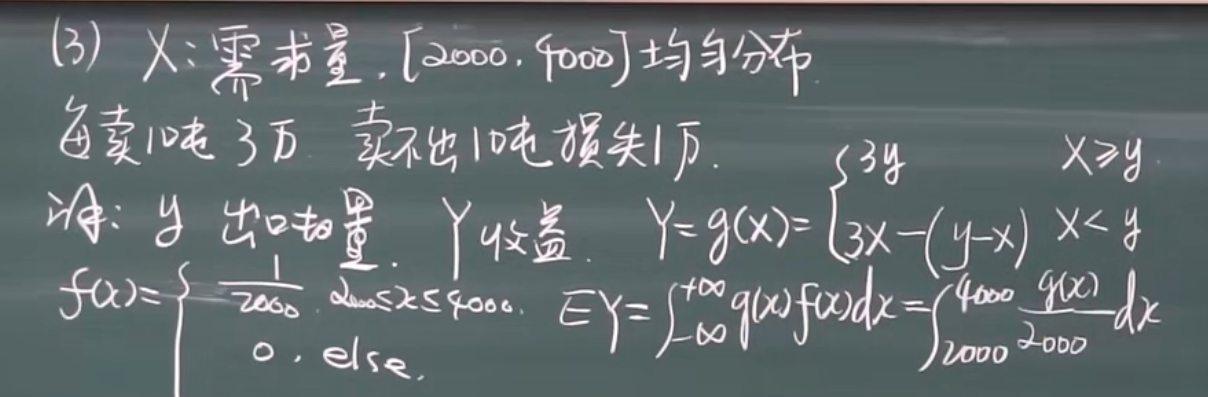 (3) X:需求量,[2000,4000]均匀分布.
每卖10吨3万. 卖不出10吨损失1万.
译: y 出口量. Y收益. Y=g(x)={3y X≥y
3X-(y-X) X<y
f(x)={1/2000. 2000≤x≤4000. EY=∫_{-∞}^{+∞}g(x)f(x)dx=∫_{2000}^{4000} g(x)/2000 dx
0, else.